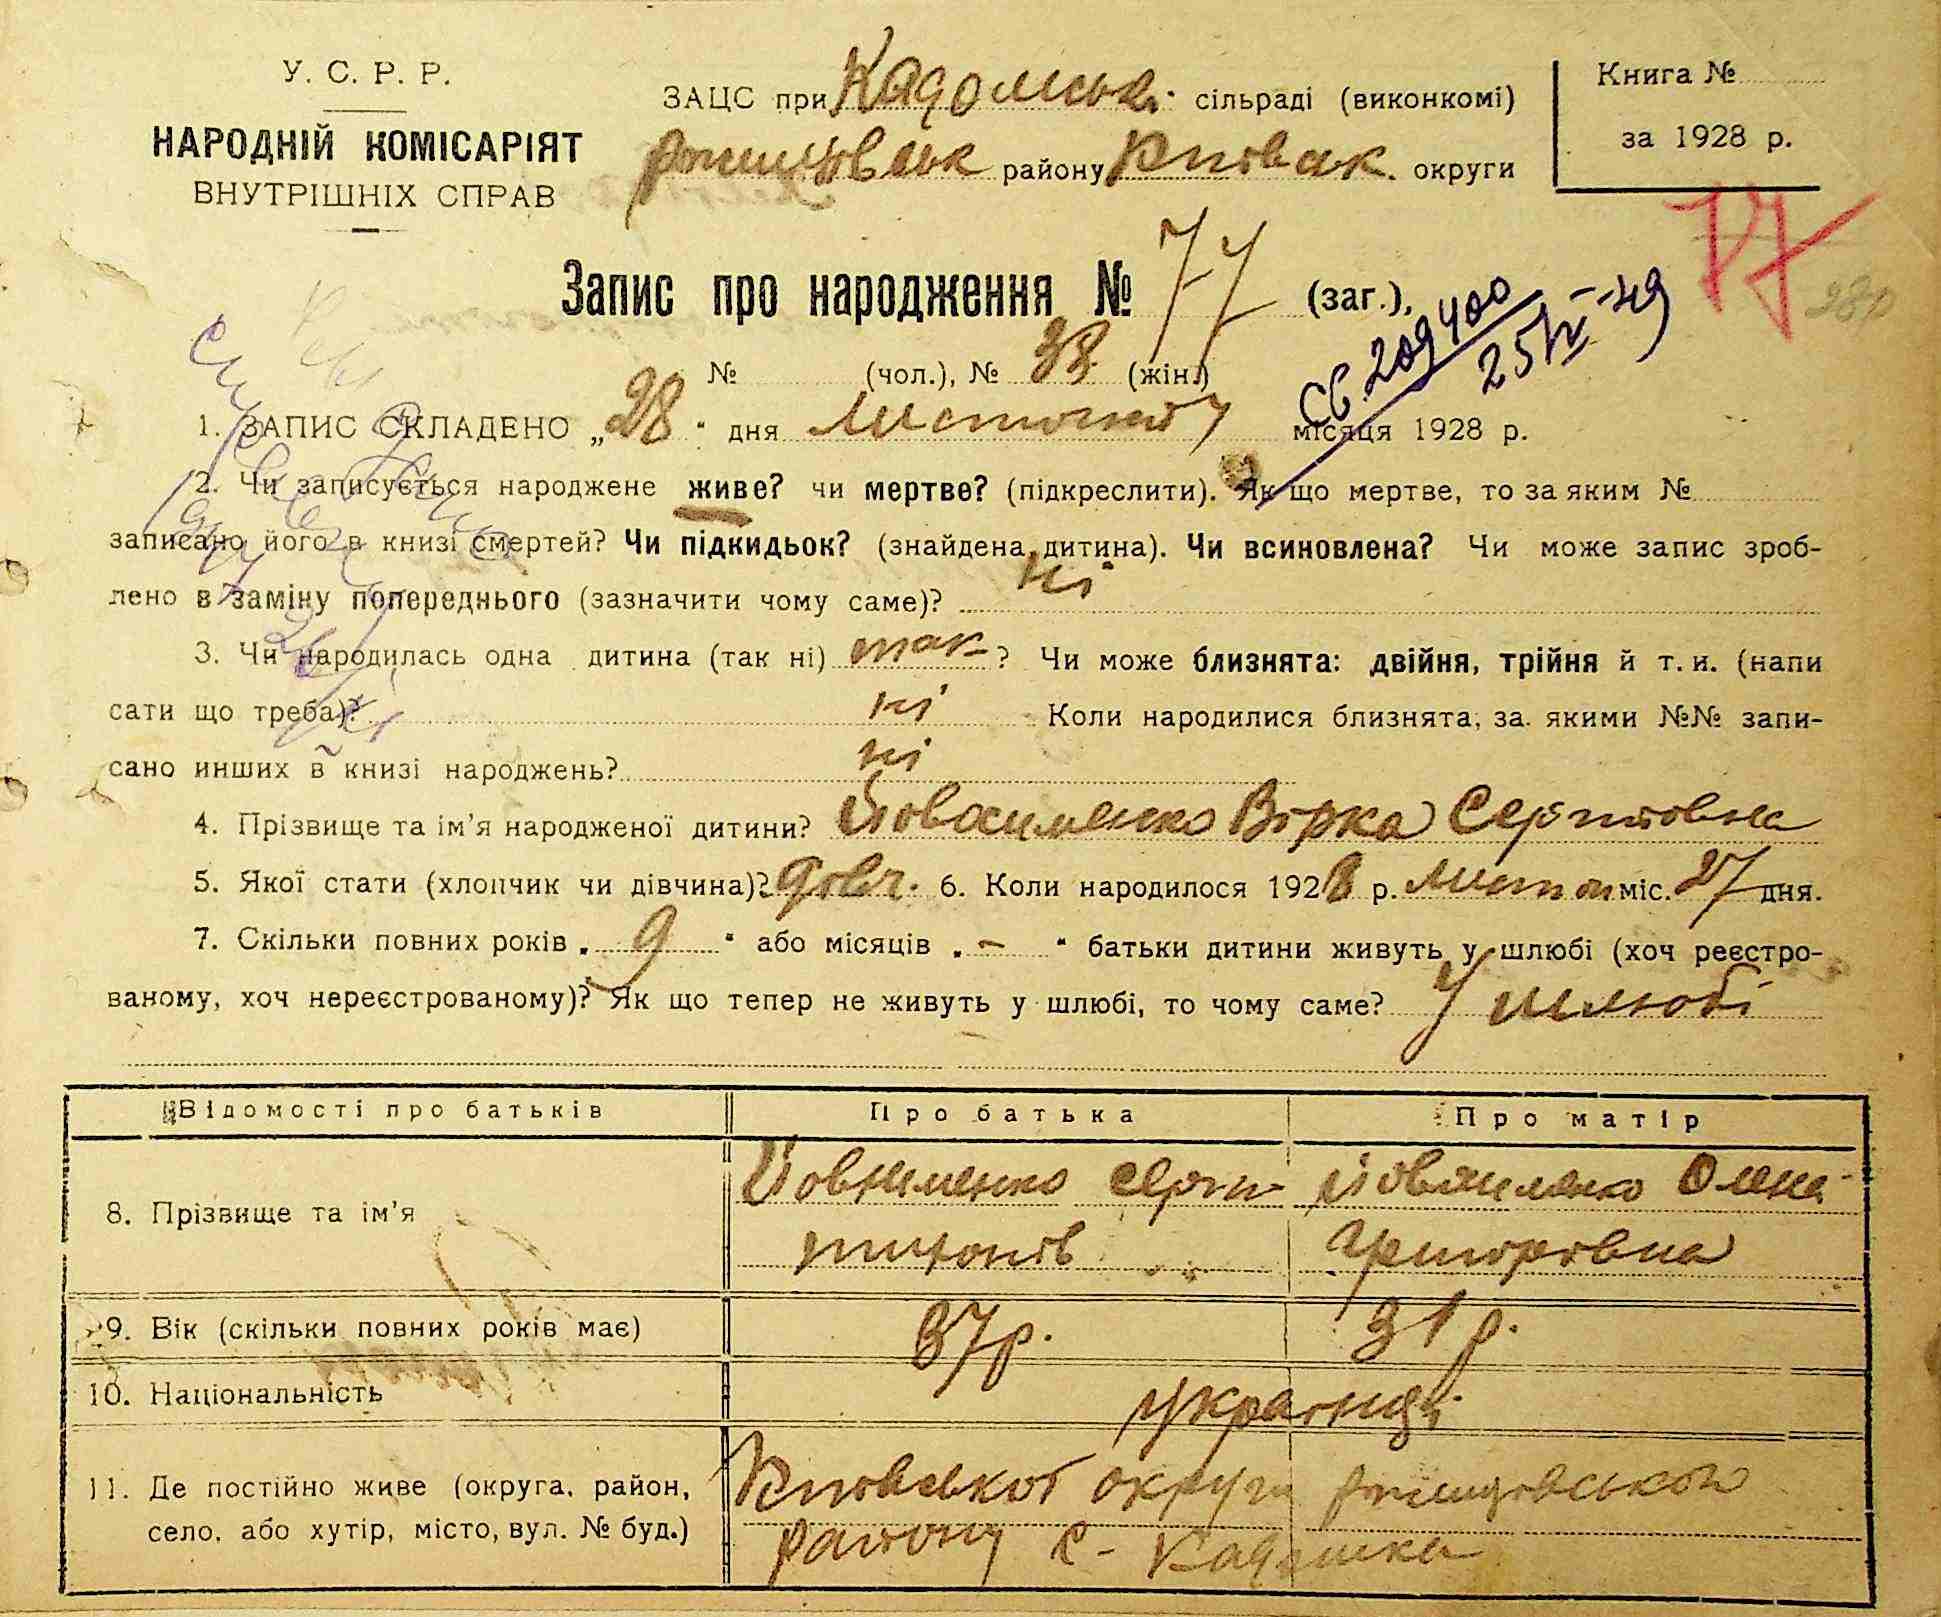 У. С. Р. Р.
НАРОДНІЙ КОМІСАРІЯТ
ВНУТРІШНІХ СПРАВ
ЗАЦС при Кадомські сільраді (виконкомі)
району Київськ. округи
Книга №
за 1928 р.
77
Запис про народження № 77 (заг.),
№ (чол.), № 38 (жін.)
Св. 209400
25/VI-49
1. ЗАПИС СКЛАДЕНО „28" дня листопаду місяця 1928 р.
2. Чи записується народжене живе? чи мертве? (підкреслити). Як що мертве, то за яким №
записано його в книзі смертей? Чи підкидьок? (знайдена дитина). Чи всиновлена? Чи може запис зроб-
лено в заміну попереднього (зазначити чому саме)? ні
3. Чи народилась одна дитина (так ні) так ? Чи може близнята: двійня, трійня й т. и. (напи
сати що треба)? ні Коли народилися близнята, за якими №№ запи-
сано инших в книзі народжень? ні
4. Прізвище та ім'я народженої дитини? Вірка Сергіївна
5. Якої стати (хлопчик чи дівчина)? дівч. 6. Коли народилося 1928 р. листоп міс. 27 дня.
7. Скільки повних років „ 9 " або місяців „ – " батьки дитини живуть у шлюбі (хоч реєстро-
ваному, хоч нереєстрованому)? Як що тепер не живуть у шлюбі, то чому саме? У шлюбі
Відомості про батьків Про батька Про матір
8. Прізвище та ім'я Сергій Олена
Григорівна
9. Вік (скільки повних років має) 37р. 31р.
10. Національність українці
11. Де постійно живе (округа, район, Київської округи
село, або хутір, місто, вул. № буд.) району с-Кадомка